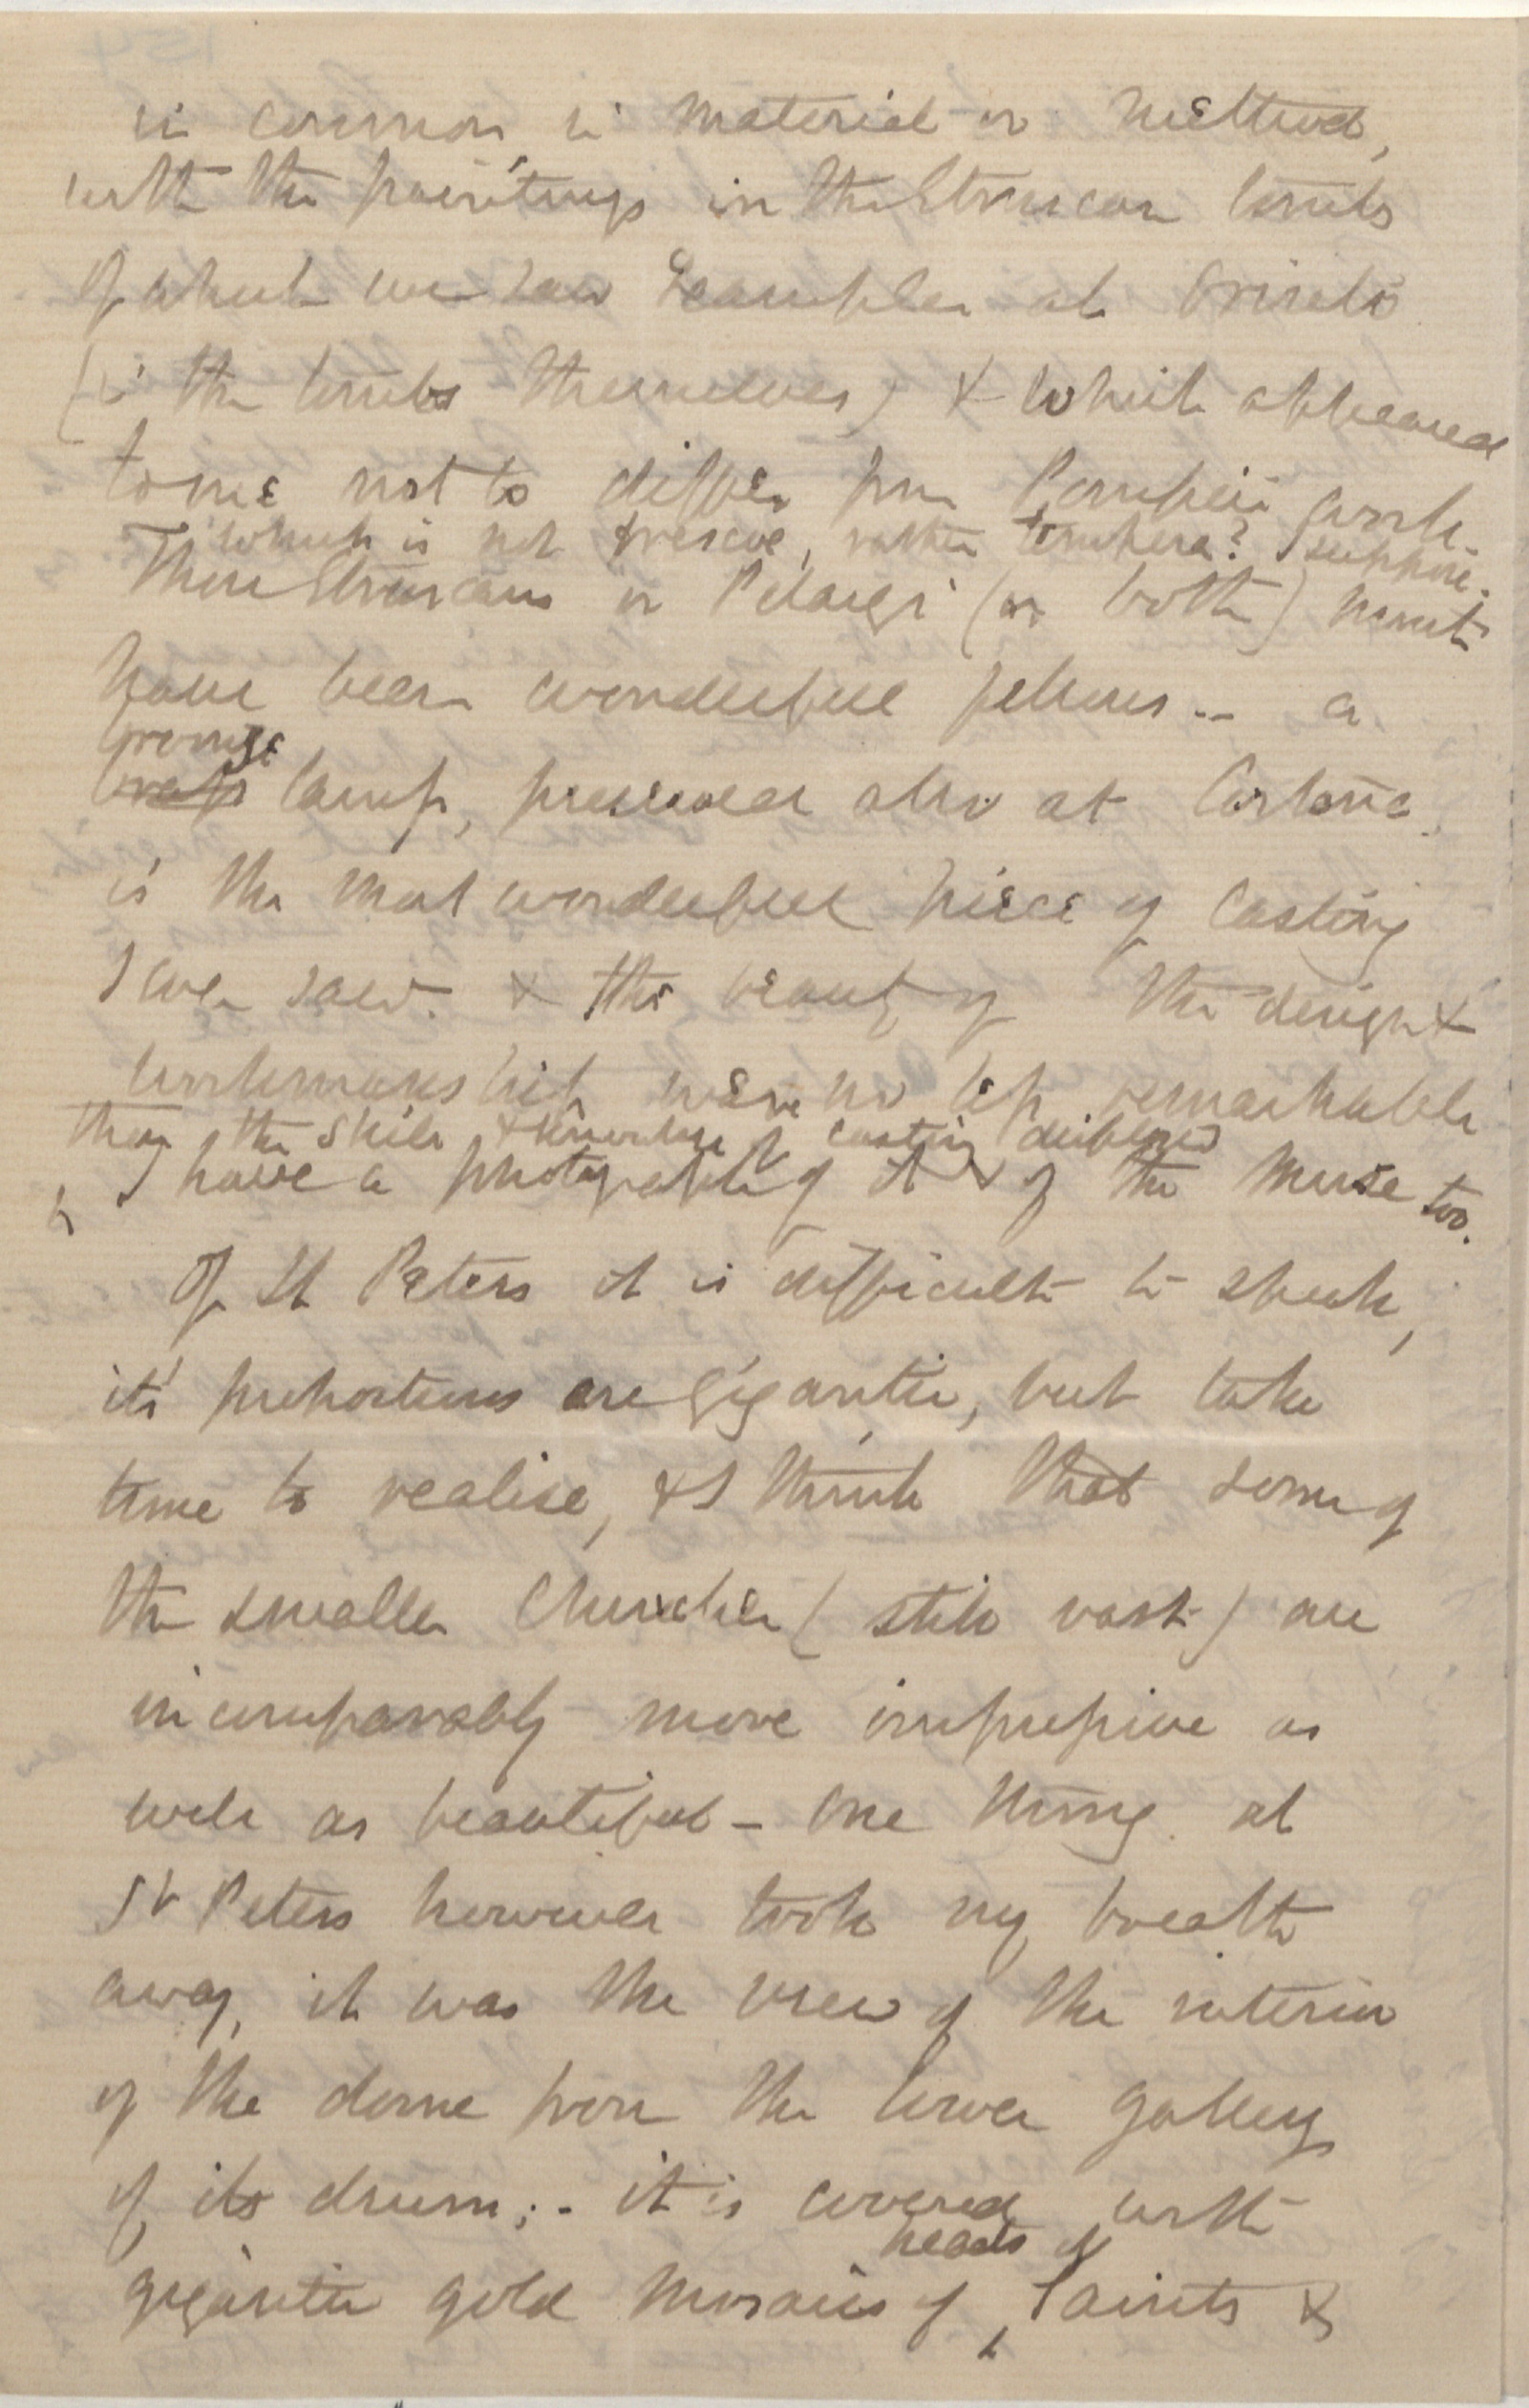 in common, in material or method,
with the paintings in the Etruscan tombs
of which we saw examples at Orvieto
(in the tombs themselves) & which appeared
to me not to differ from Pompeii work.
which is not frescoe, rather tempera? I suppose.
These Etruscans or Pelasgi (or both) must
have been wonderful fellows -- a
bronze
brass lamp, preserved also at Cortona,
is the most wonderful piece of casting
I ever saw. & the beauty of the design &
workmanship were no less remarkable
than the skill & knowledge of casting displayed
I have a photograph of it & of the Muse too.
Of St Peters it is difficult to speak,
it's proportions are gigantic, but take
time to realise, & I think that some of
the smaller Churches (still vast) are
incomparably more impressive as
well as beautiful - One thing at
St Peters however took my breath
away, it was the view of the interior
of the dome from the lower gallery
of its drum; - it is covered with
heads of
gigantic gold mosaics of Saints &